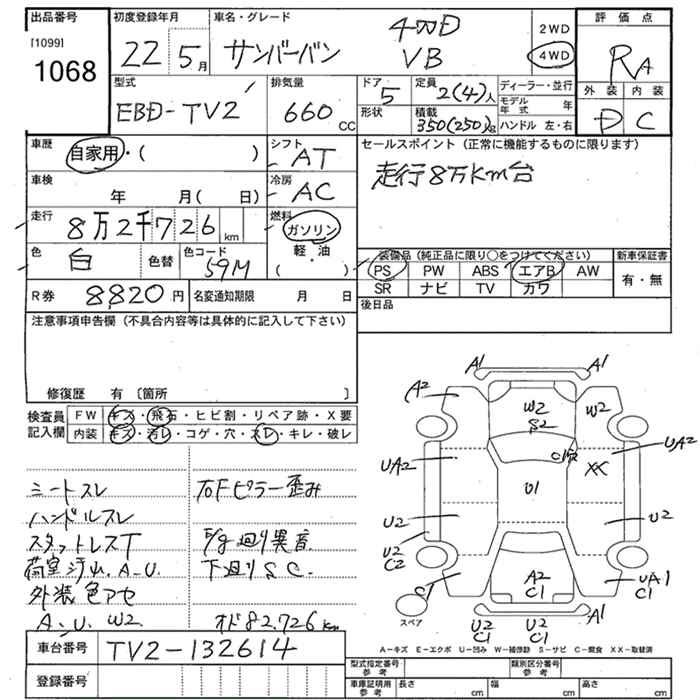 出品番号 初度登録年月 車名・グレード 評価点
[1099]
1068
22年 5月 サンバーバン 4WD VB 2WD 4WD RA
外装 内装
D C
型式 排気量 ドア 定員 ディーラー・並行
EBD-TV2 660 CC 5 2(4)人 モデル年式 年
形状 積載 350(250)kg ハンドル 左・右
車歴 自家用・( ) シフト AT セールスポイント(正常に機能するものに限ります)
車検 年 月( 日) 冷房 AC 走行8万Km台
走行 8万2千726 km 燃料 ガソリン 軽・油 ( ・ )
色 白 色替 色コード 59M
装備品(純正品に限り○をつけてください) 新車保証書
PS PW ABS エアB AW 有・無
SR ナビ TV カワ
R券 8820円 名変通知期限 月 日 後日品
注意事項申告欄(不具合内容等は具体的に記入して下さい)
修復歴 有 〔箇所 〕
検査員記入欄 FW キズ・飛石・ヒビ割・リペア跡・X要
内装 キズ・汚レ・コゲ・穴・スレ・キレ・破レ
シートスレ 右Fピラー歪み
ハンドルスレ
スタットレスT F/g廻り異音
荷室汚れ.A-U. 下廻りS.C.
外装色アセ
A.U.W2 オド82.726km
A1 A1
A2 W2 W2
S2
UA2 XX UA2
U1
U2 U2
U2
C2
C1 A2 UA1
C1 C1
スペア U2 U2 A1
C1 C1
A-キズ E-エクボ U-凹み W-補修跡 S-サビ C-腐食 XX-取替済
車台番号 TV2-132614
登録番号
型式指定番号 参考 類別区分番号 参考
車庫証明用 参考 長さ cm 幅 cm 高さ cm